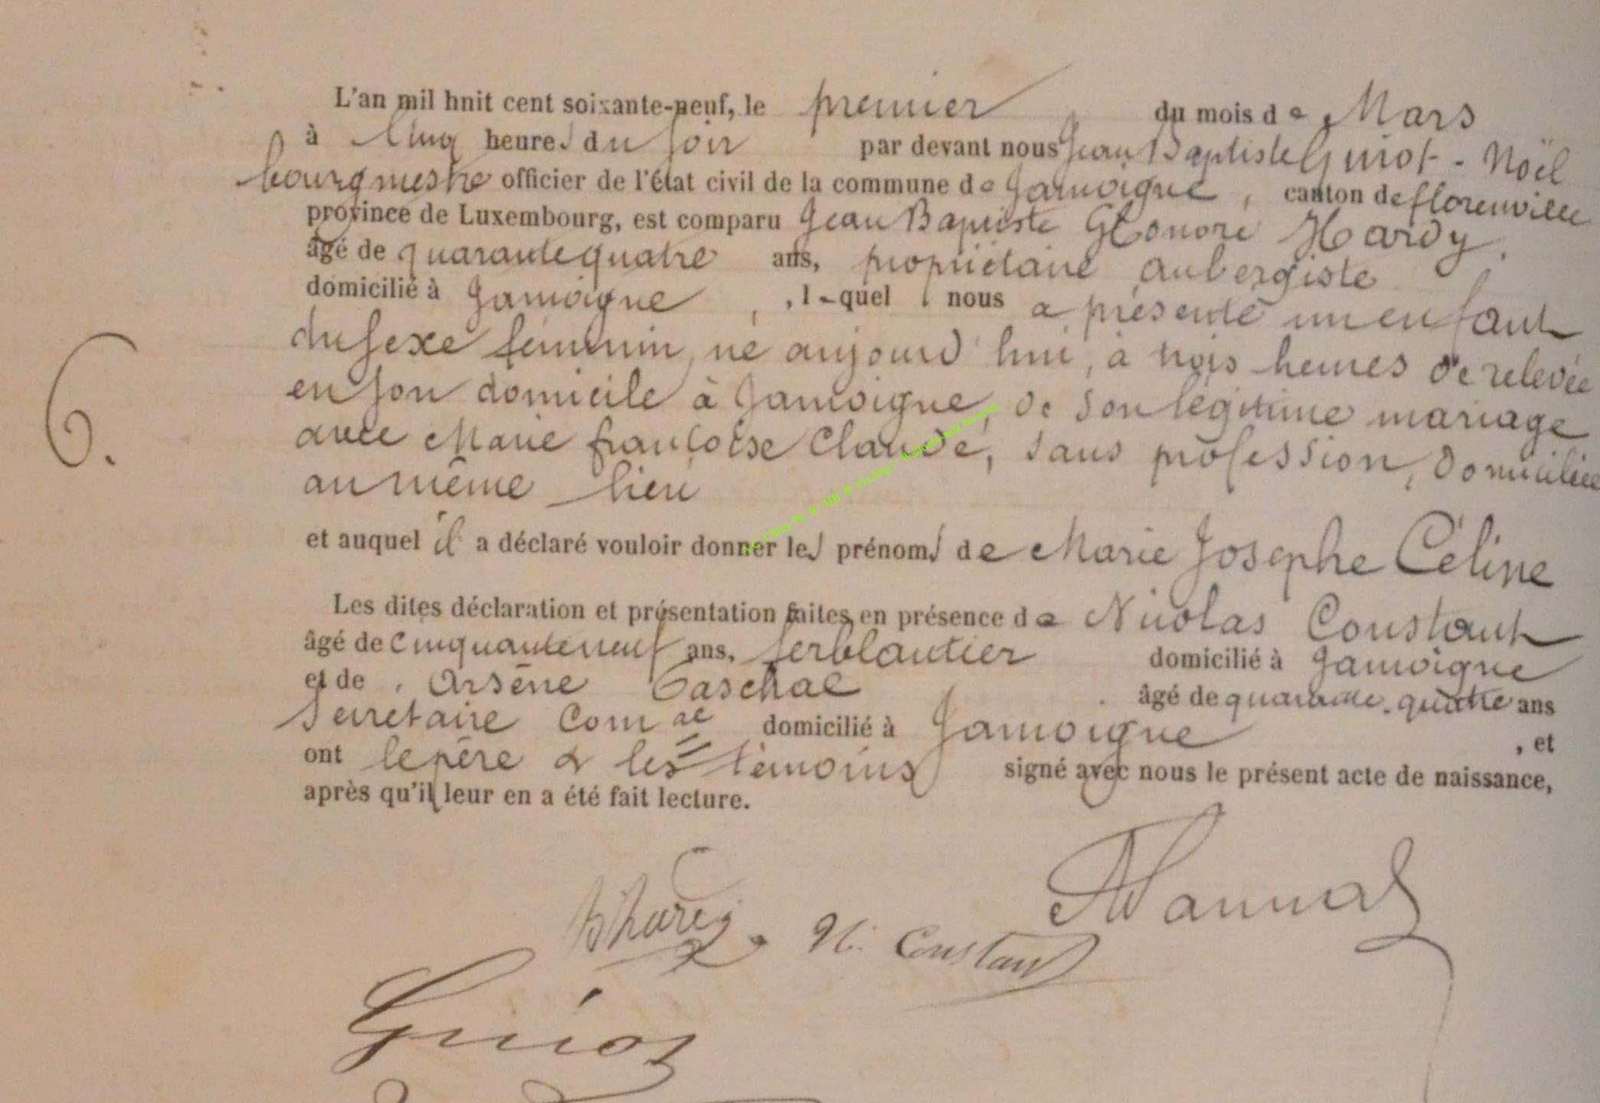 L'an mil hnit cent soixante-neuf, le premier du mois de Mars
à Cinq heures du soir par devant nous Jean Baptiste Guiot - Noël
bourgmestre officier de l'état civil de la commune de Jamoigne, canton de florenville
province de Luxembourg, est comparu Jean Baptiste Honoré Hardy,
âgé de quarante quatre ans, propriétaire aubergiste
domicilié à Jamoigne, lequel nous a présenté un enfant
du sexe féminin, né aujourd'hui, à trois heures de relevée
en son domicile à Jamoigne, de son légitime mariage
avec Marie françoise Claude, sans profession, domiciliée
au même lieu
6.
et auquel il a déclaré vouloir donner les prénoms de Marie Josephe Céline
Les dites déclaration et présentation faites en présence de Nicolas Constant
âgé de cinquante neuf ans, ferblantier domicilié à Jamoigne
et de Arsène âgé de quarante-quatre ans
Secrétaire Comal domicilié à Jamoigne, et
ont le père & les témoins signé avec nous le présent acte de naissance,
après qu'il leur en a été fait lecture.
N. Constant
Guiot